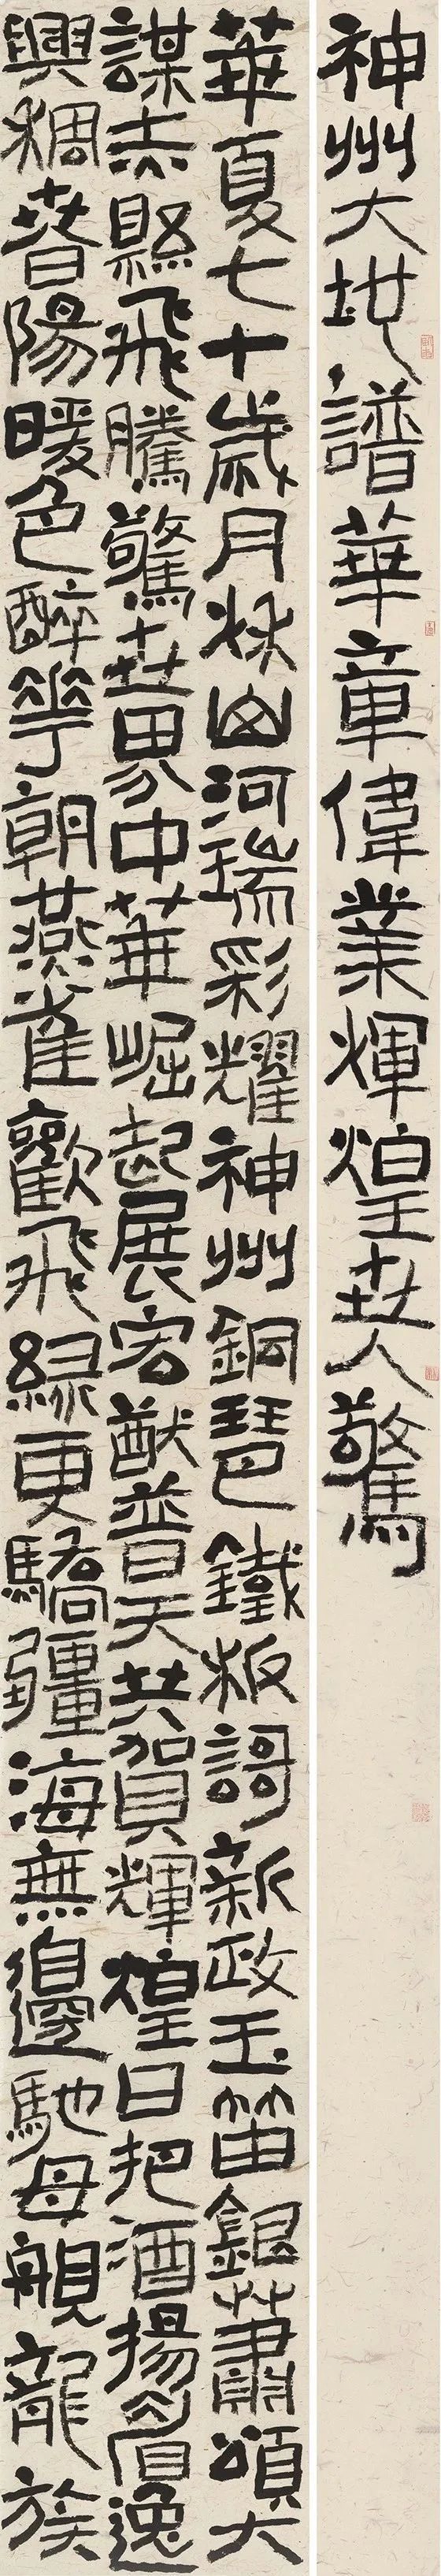 神州大地譜華章偉業輝煌世人驚
華夏七十歲月秋山河瑞彩耀神州銅琶鐵板謌新政玉笛銀蕭頌大
謀赤縣飛騰驚世界中華崛起展宏猷普天共賀輝煌日把酒揚眉逸
興稠春陽暖色醉花朝燕雀歡飛綠更驕疆海無邊馳母舰龍族